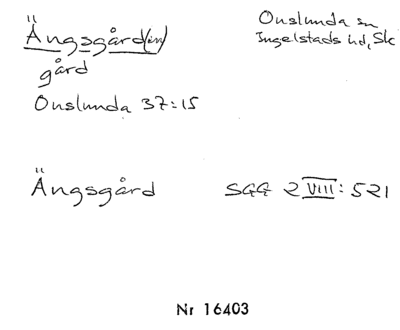 Ängsgård(en)
gård
Onslunda 37:15
Onslunda sn
Ingelstads hd, Sk
Ängsgård
SGG 2 VIII: 521
Nr 16403